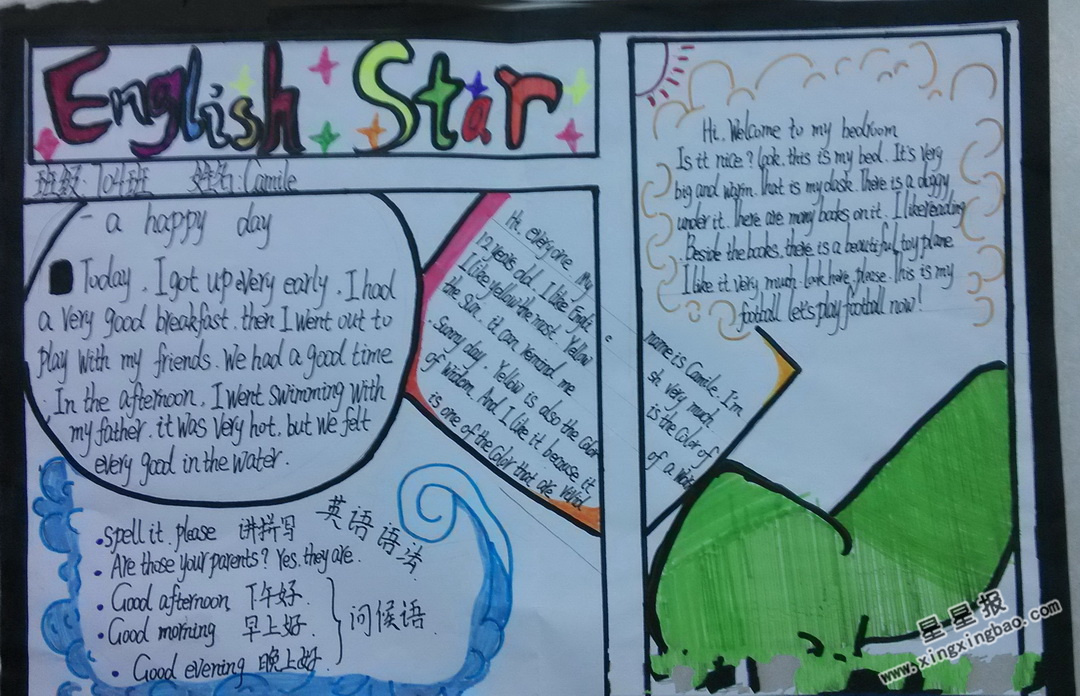 English Star
班级:704班 姓名:Camile
- a happy day
Today, I got up very early. I had
a very good breakfast. then I went out to
play with my friends. We had a good time
In the afternoon, I went swimming with
my father. it was very hot. but we felt
every good in the water.
Hi, everyone My name is Camile. I'm
12 years old. I like English very much.
I like yellow the most. Yellow is the color of
the Sun. it can remand me of a
Sunny day. Yellow is also the color
of wisdom. And I like it because it
is one of the color that are
Hi, Welcome to my bedroom
Is it nice? look. this is my bed. It's very
big and warm. that is my dask. There is a doggy
under it. There are many books on it. I like reading
Beside the books. there is a beautiful toy plane
I like it very much. look here, please. this is my
football let's play football now!
英语语法
spell it. please 讲拼写
Are those your parents? Yes. they are.
Good afternoon 下午好.
Good morning 早上好.
Good evening 晚上好.
问候语.
星星报
www.xingxingbao.com